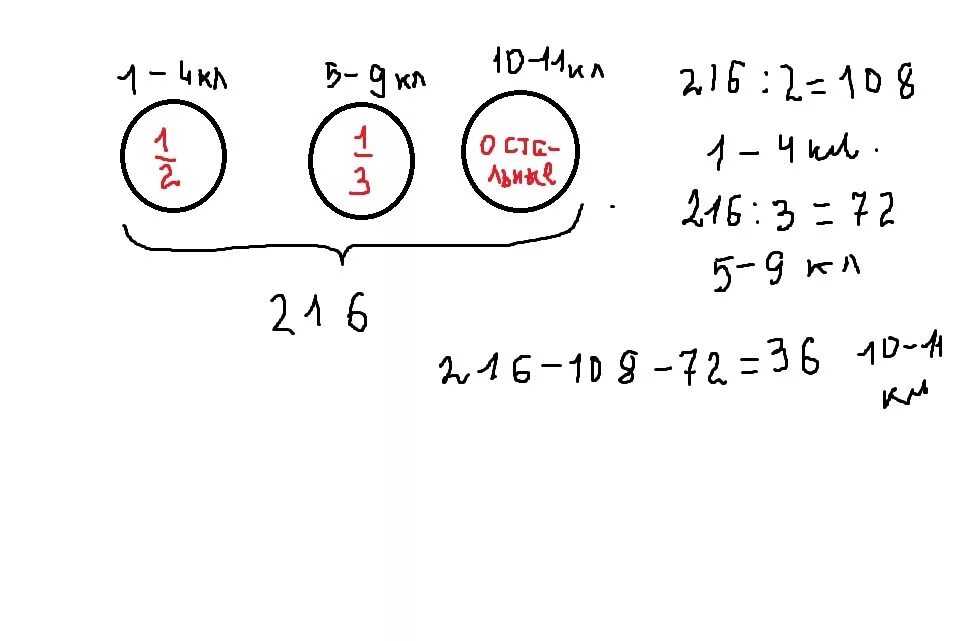 1 - 4 кл
5 - 9 кл
10-11 кл
1/2
1/3
оста-
льные
216
216 : 2 = 108
1 - 4 кл.
216 : 3 = 72
5 - 9 кл
216 - 108 - 72 = 36 10-11
кл